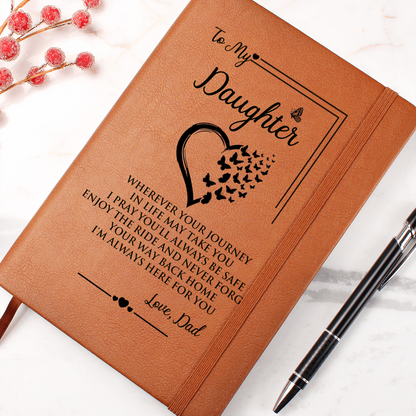 To My
Daughter
WHEREVER YOUR JOURNEY
IN LIFE MAY TAKE YOU
I PRAY YOU'LL ALWAYS BE SAFE
ENJOY THE RIDE AND NEVER FORG
YOUR WAY BACK HOME
I'M ALWAYS HERE FOR YOU
Love, Dad